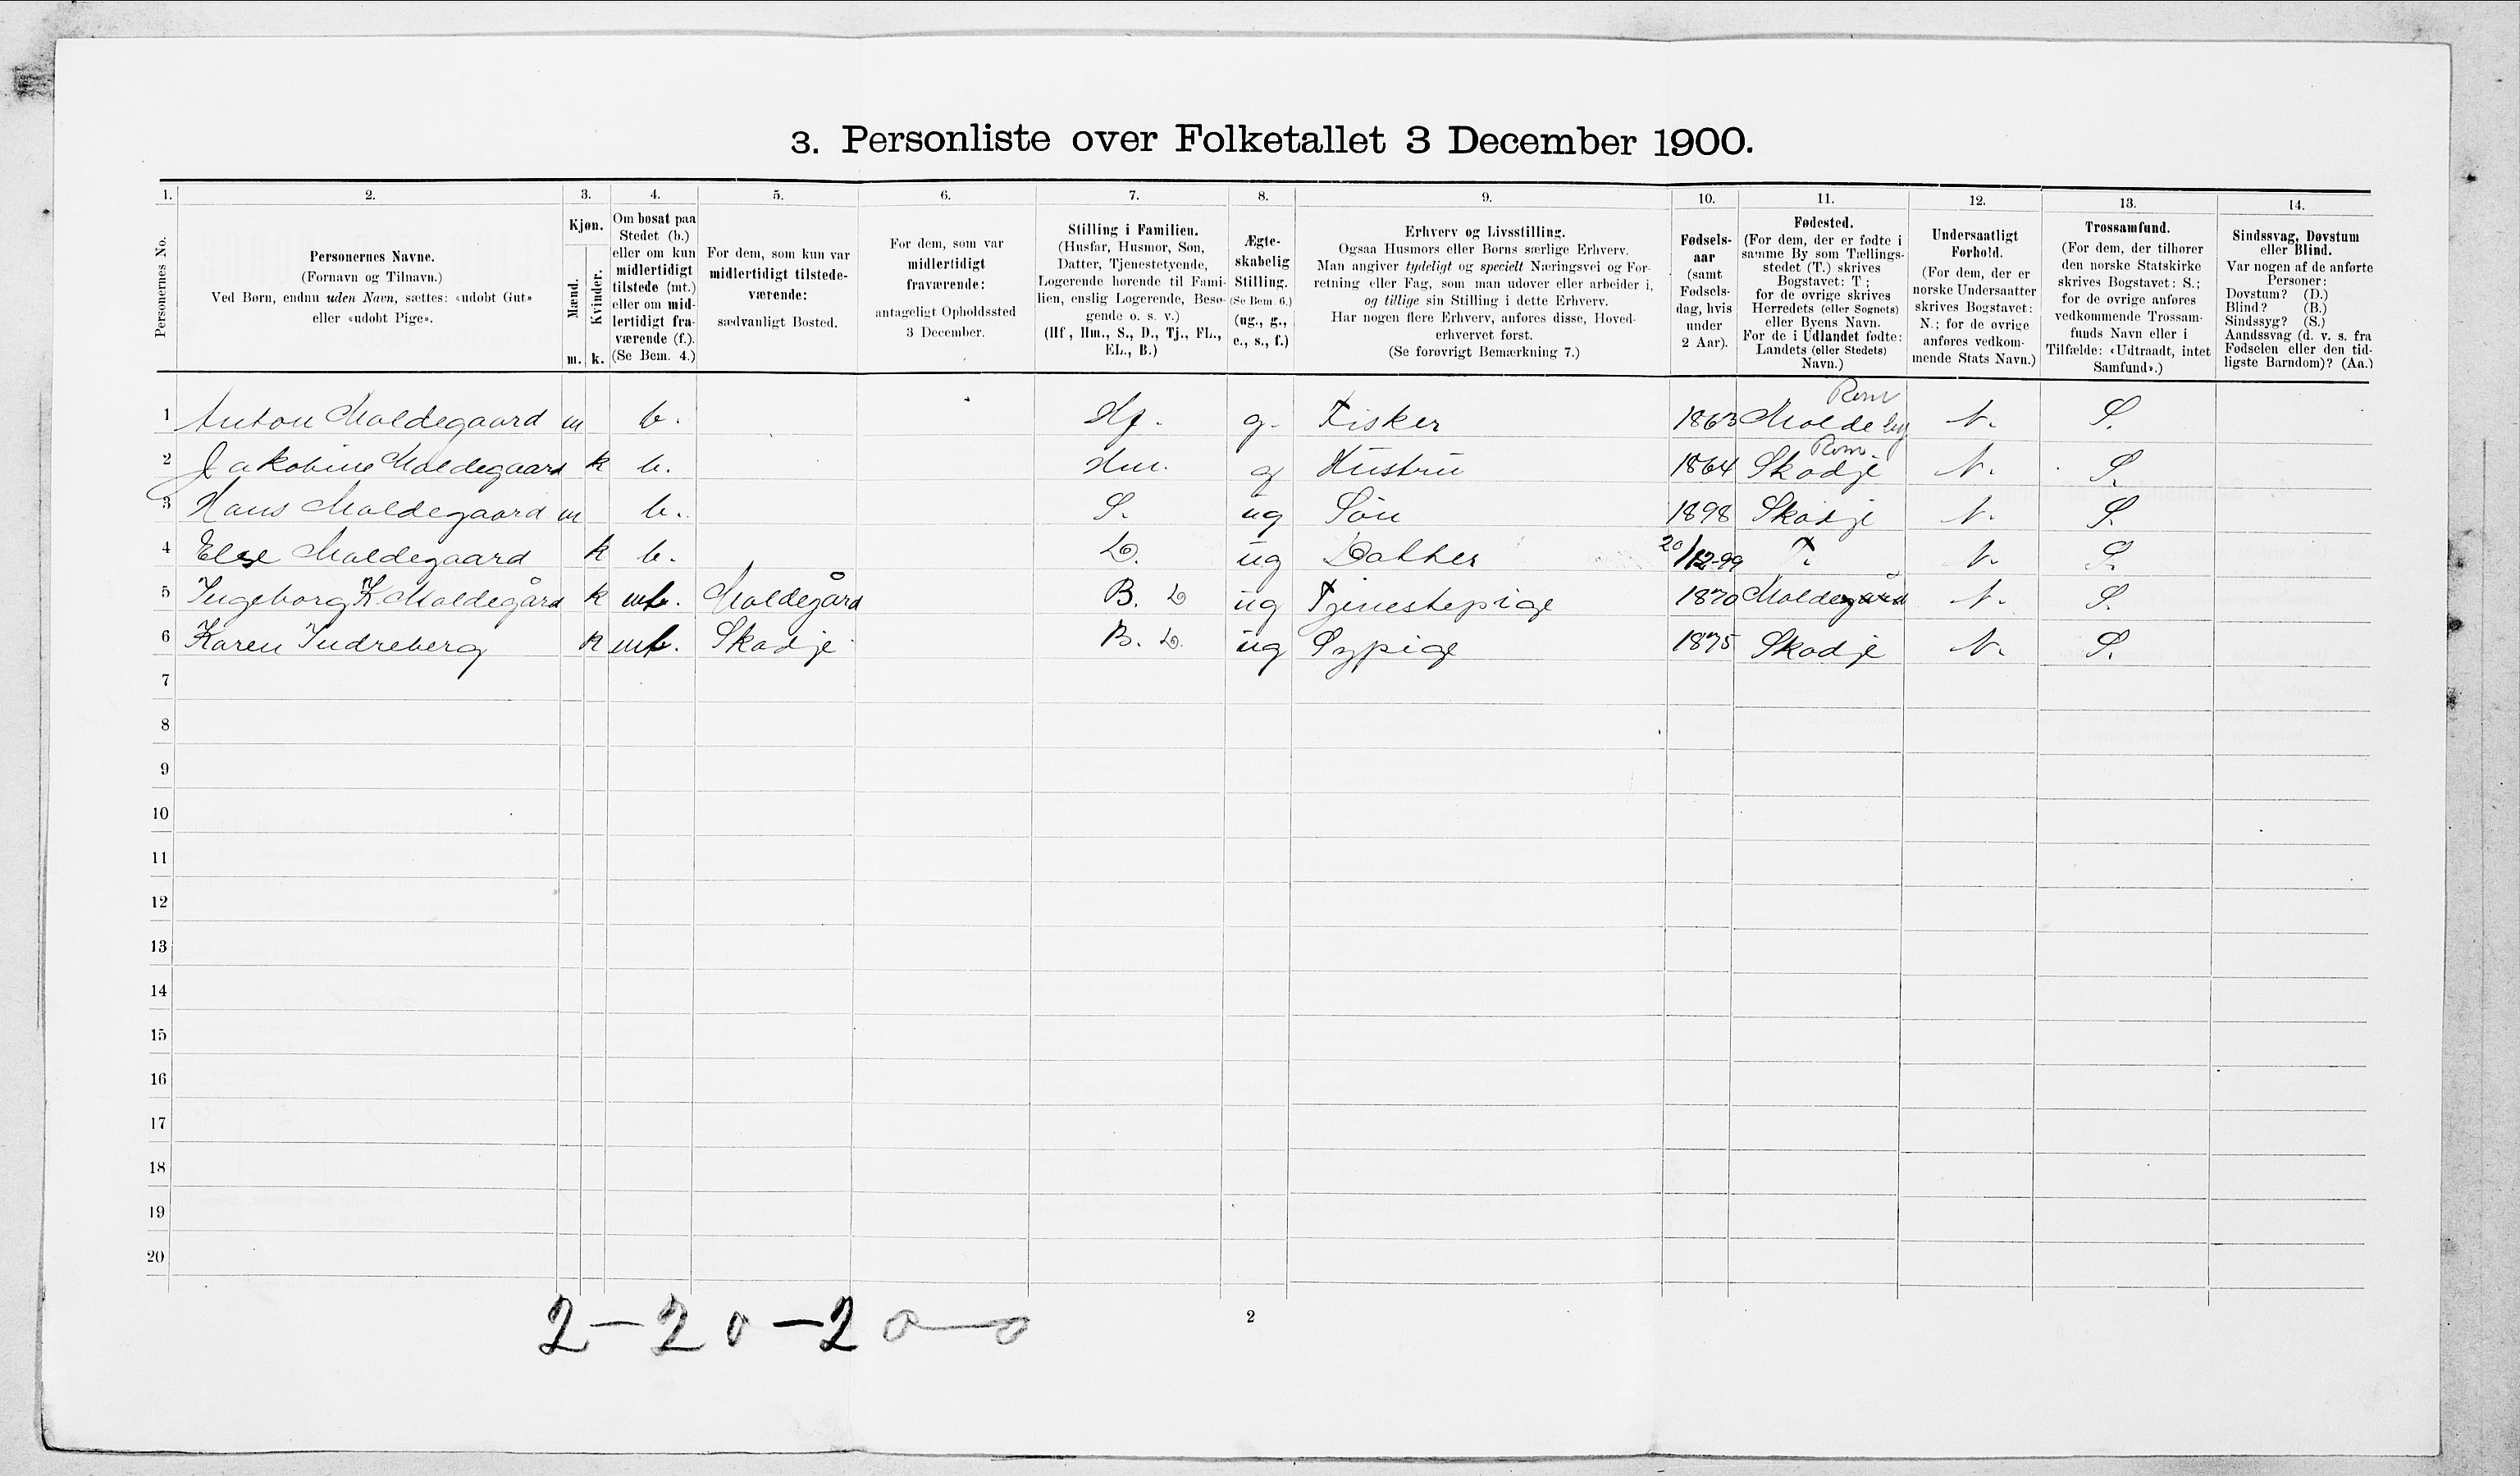 3. Personliste over Folketallet 3 December 1900.
1. 2. 3. 4. 5. 6. 7. 8. 9. 10. 11. 12. 13. 14.
Personernes No.
Personernes Navne.
(Fornavn og Tilnavn.)
Ved Børn, endnu uden Navn, sættes: «udøbt Gut»
eller «udøbt Pige».
Kjøn.
Mænd.
Kvinder.
m. k.
Om bosat paa
Stedet (b.)
eller om kun
midlertidigt
tilstede (mt.)
eller om mid-
lertidigt fra-
værende (f.).
(Se Bem. 4.)
For dem, som kun var
midlertidigt tilstede-
værende:
sædvanligt Bosted.
For dem, som var
midlertidigt
fraværende:
antageligt Opholdssted
3 December.
Stilling i Familien.
(Husfar, Husmor, Søn,
Datter, Tjenestetyende,
Logerende hørende til Fami-
lien, enslig Logerende, Besø-
gende o. s. v.)
(Hf, Hm., S., D., Tj., FL.,
EL., B.)
Ægte-
skabelig
Stilling.
(Se Bem. 6.)
(ug., g.,
e., s., f.)
Erhverv og Livsstilling.
Ogsaa Husmors eller Børns særlige Erhverv.
Man angiver tydeligt og specielt Næringsvei og For-
retning eller Fag, som man udøver eller arbeider i,
og tillige sin Stilling i dette Erhverv.
Har nogen flere Erhverv, anføres disse, Hoved-
erhvervet først.
(Se forøvrigt Bemærkning 7.)
Fødsels-
aar
(samt
Fødsels-
dag, hvis
under
2 Aar).
Fødested.
(For dem, der er fødte i
samme By som Tællings-
stedet (T.) skrives
Bogstavet: T;
for de øvrige skrives
Herredets (eller Sognets)
eller Byens Navn.
For de i Udlandet fødte:
Landets (eller Stedets)
Navn.)
Undersaatligt
Forhold.
(For dem, der er
norske Undersaatter
skrives Bogstavet:
N.; for de øvrige
anføres vedkom-
mende Stats Navn.)
Trossamfund.
(For dem, der tilhører
den norske Statskirke
skrives Bogstavet: S.;
for de øvrige anføres
vedkommende Trossam-
funds Navn eller i
Tilfælde: «Udtraadt, intet
Samfund».)
Sindssvag, Døvstum
eller Blind.
Var nogen af de anførte
Personer:
Døvstum? (D.)
Blind? (B.)
Sindssyg? (S.)
Aandssvag (d. v. s. fra
Fødselen eller den tid-
ligste Barndom)? (Aa.)
Rom
1 Anton Moldegaard m b. Hf. g. Fisker 1863 Molde by N. S.
Rom.
2 Jakobine Moldegaard k b. Hm. g Hustru 1864 Skodje N. S.
3 Hans Moldegaard m b. S. ug Søn 1898 Skodje N. S.
4 Else Moldegaard k b. D. ug Datter 20/12-99 T. N. S.
5 Ingeborg K. Moldegård k mt. Moldegård B. D ug Tjenestepige 1870 Moldegård N. S.
6 Karen Indreberg k mt. Skodje B. D. ug Sypige 1875 Skodje N. S.
7
8
9
10
11
12
13
14
15
16
17
18
19
20
2-20-20-0
2